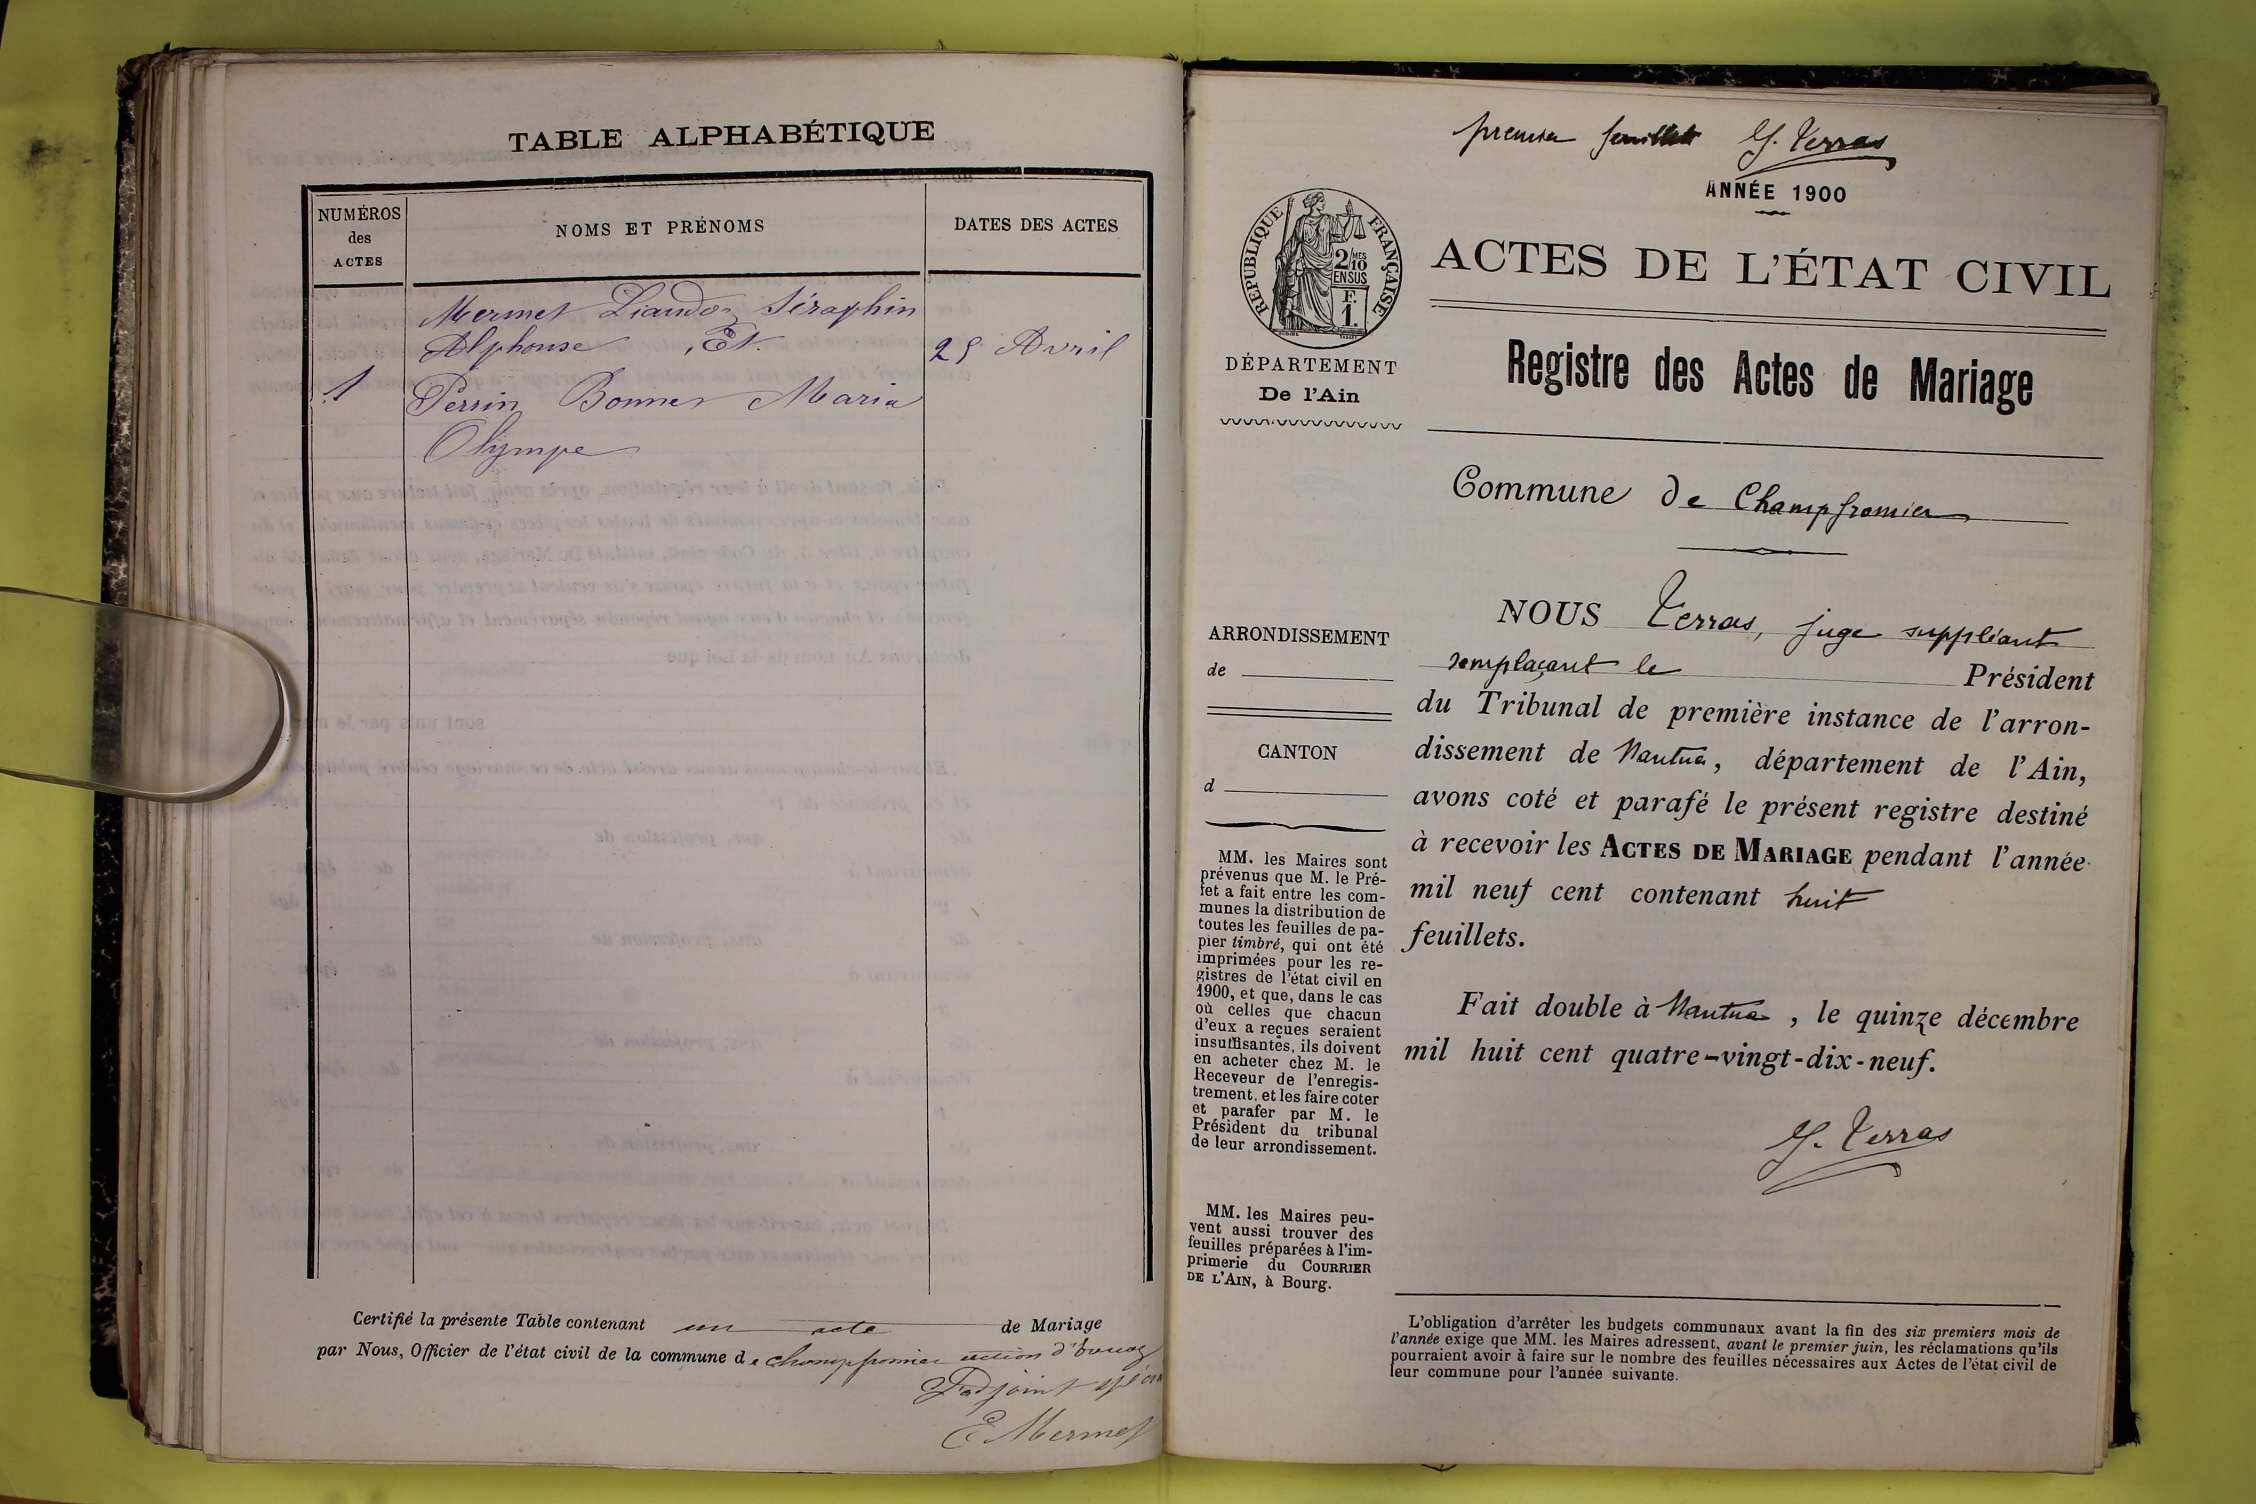 TABLE ALPHABÉTIQUE
NUMÉROS
des
ACTES
NOMS ET PRÉNOMS
DATES DES ACTES
Mermet Liandoz Séraphin
Alphonse Et
25 Avril
1
Perrin Bonnet Maria
Olympe
Certifié la présente Table contenant un acte de Mariage
par Nous, Officier de l'état civil de la commune de Champfromier section d'
L'adjoint
E Mermet
premier feuillet G. Terras
ANNÉE 1900
RÉPUBLIQUE FRANÇAISE
2/10 MES
EN SUS
F.
1.
ACTES DE L'ÉTAT CIVIL
DÉPARTEMENT
De l'Ain
Registre des Actes de Mariage
Commune de Champfromier
ARRONDISSEMENT
de
CANTON
d
MM. les Maires sont
prévenus que M. le Pré-
fet a fait entre les com-
munes la distribution de
toutes les feuilles de pa-
pier timbré, qui ont été
imprimées pour les re-
gistres de l'état civil en
1900, et que, dans le cas
où celles que chacun
d'eux a reçues seraient
insuffisantes, ils doivent
en acheter chez M. le
Receveur de l'enregis-
trement, et les faire coter
et parafer par M. le
Président du tribunal
de leur arrondissement.
MM. les Maires peu-
vent aussi trouver des
feuilles préparées à l'im-
primerie du COURRIER
DE L'AIN, à Bourg.
NOUS Terras, juge suppléant
remplaçant le Président
du Tribunal de première instance de l'arron-
dissement de Nantua, département de l'Ain,
avons coté et parafé le présent registre destiné
à recevoir les ACTES DE MARIAGE pendant l'année
mil neuf cent contenant huit
feuillets.
Fait double à Nantua, le quinze décembre
mil huit cent quatre-vingt-dix-neuf.
G. Terras
L'obligation d'arrêter les budgets communaux avant la fin des six premiers mois de
l'année exige que MM. les Maires adressent, avant le premier juin, les réclamations qu'ils
pourraient avoir à faire sur le nombre des feuilles nécessaires aux Actes de l'état civil de
leur commune pour l'année suivante.